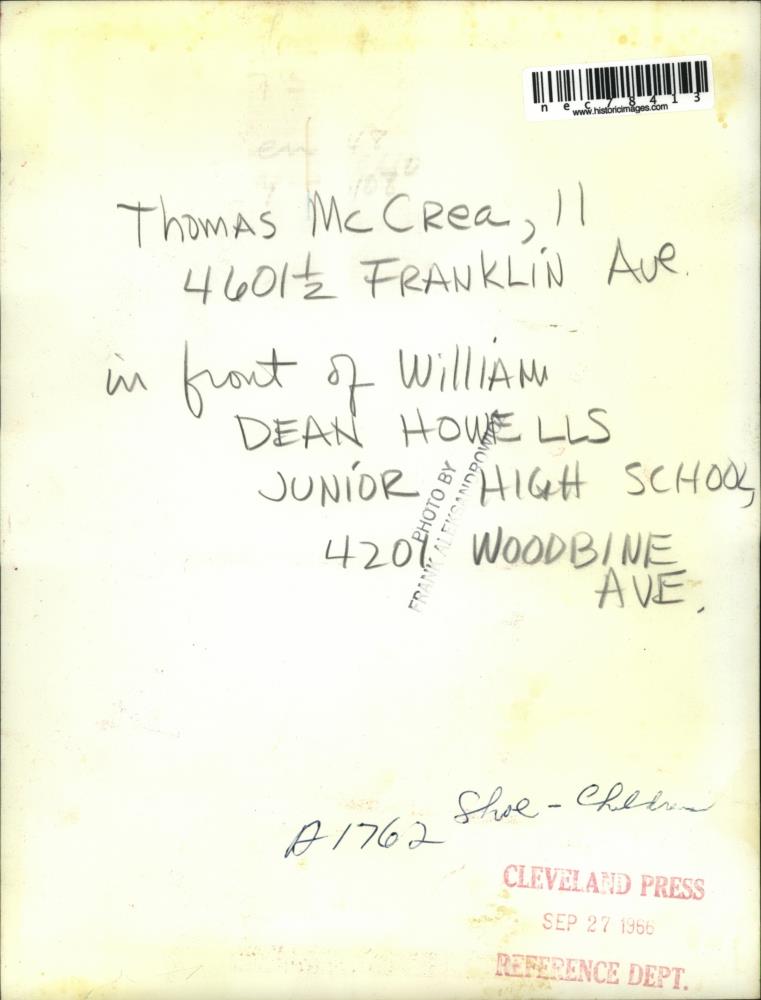 nec78413
www.historicimages.com
Thomas McCrea, 11
4601½ FRANKLIN Ave.
in front of William
DEAN HOWELLS
JUNIOR HIGH SCHOOL,
4201 WOODBINE
AVE.
PHOTO BY
FRANK ALEKSANDROWICZ
Shoe - Children
A1762
CLEVELAND PRESS
SEP 27 1966
REFERENCE DEPT.